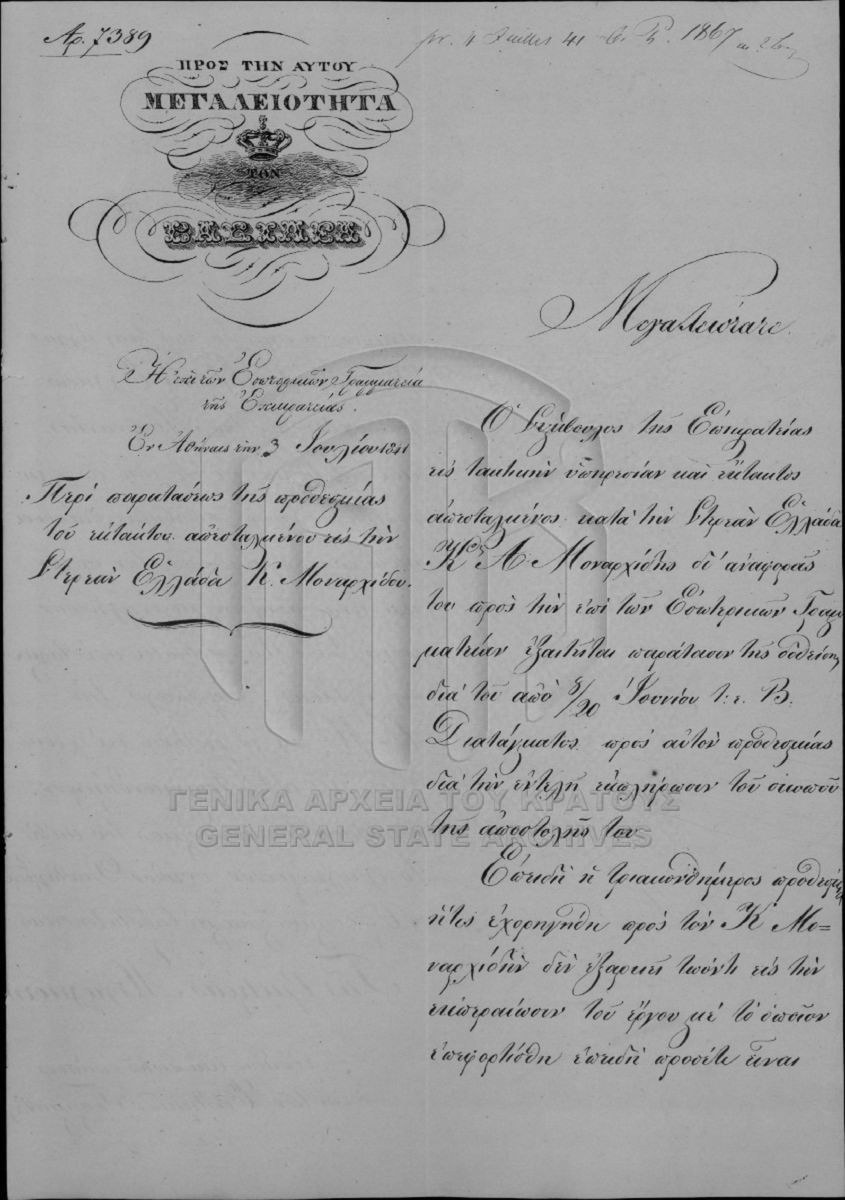 Αρ. 7389
pr. 4 Juillet 41 1867
ΠΡΟΣ ΤΗΝ ΑΥΤΟΥ
ΜΕΓΑΛΕΙΟΤΗΤΑ
ΤΟΝ
ΒΑΣΙΛΕΑ
Μεγαλειότατε.
Ἡ ἐπὶ τῶν Ἐσωτερικῶν Γραμματεία
τῆς Ἐπικρατείας.
Ἐν Ἀθήναις τὴν 3 Ἰουλίου 1841
Περὶ παρατάσεως τῆς προθεσμίας
τοῦ ἐκτάκτου ἀπεσταλμένου εἰς τὴν
Στερεὰν Ἑλλάδα Κ. Μοναρχίδου.
Ὁ Σύμβουλος τῆς Ἐπικρατείας
εἰς τακτικὴν ὑπηρεσίαν καὶ ἔκτακτος
ἀπεσταλμένος κατὰ τὴν Στερεὰν Ἑλλάδα
Κος Α Μοναρχίδης δι' ἀναφορᾶς
του πρὸς τὴν ἐπὶ τῶν Ἐσωτερικῶν Γραμ
ματείαν ἐξαιτεῖται παράτασιν τῆς δοθείσης
διὰ τοῦ ἀπὸ 8/20 Ἰουνίου τ: ἔ. Β.
Διατάγματος πρὸς αὐτὸν προθεσμίας
διὰ τὴν ἐντελῆ ἐκπλήρωσιν τοῦ σκοποῦ
τῆς ἀποστολῆς του
Ἐπειδὴ ἡ τριακονθήμερος προθεσμία
ἥτις ἐχορηγήθη πρὸς τὸν Κ Μο=
ναρχίδην δὲν ἐξαρκεῖ τῳόντι εἰς τὴν
ἐκπεραίωσιν τοῦ ἔργου μὲ τὸ ὁποῖον
ἐπεφορτίσθη ἐπειδὴ προσέτι εἶναι
ΓΕΝΙΚΑ ΑΡΧΕΙΑ ΤΟΥ ΚΡΑΤΟΥΣ
GENERAL STATE ARCHIVES